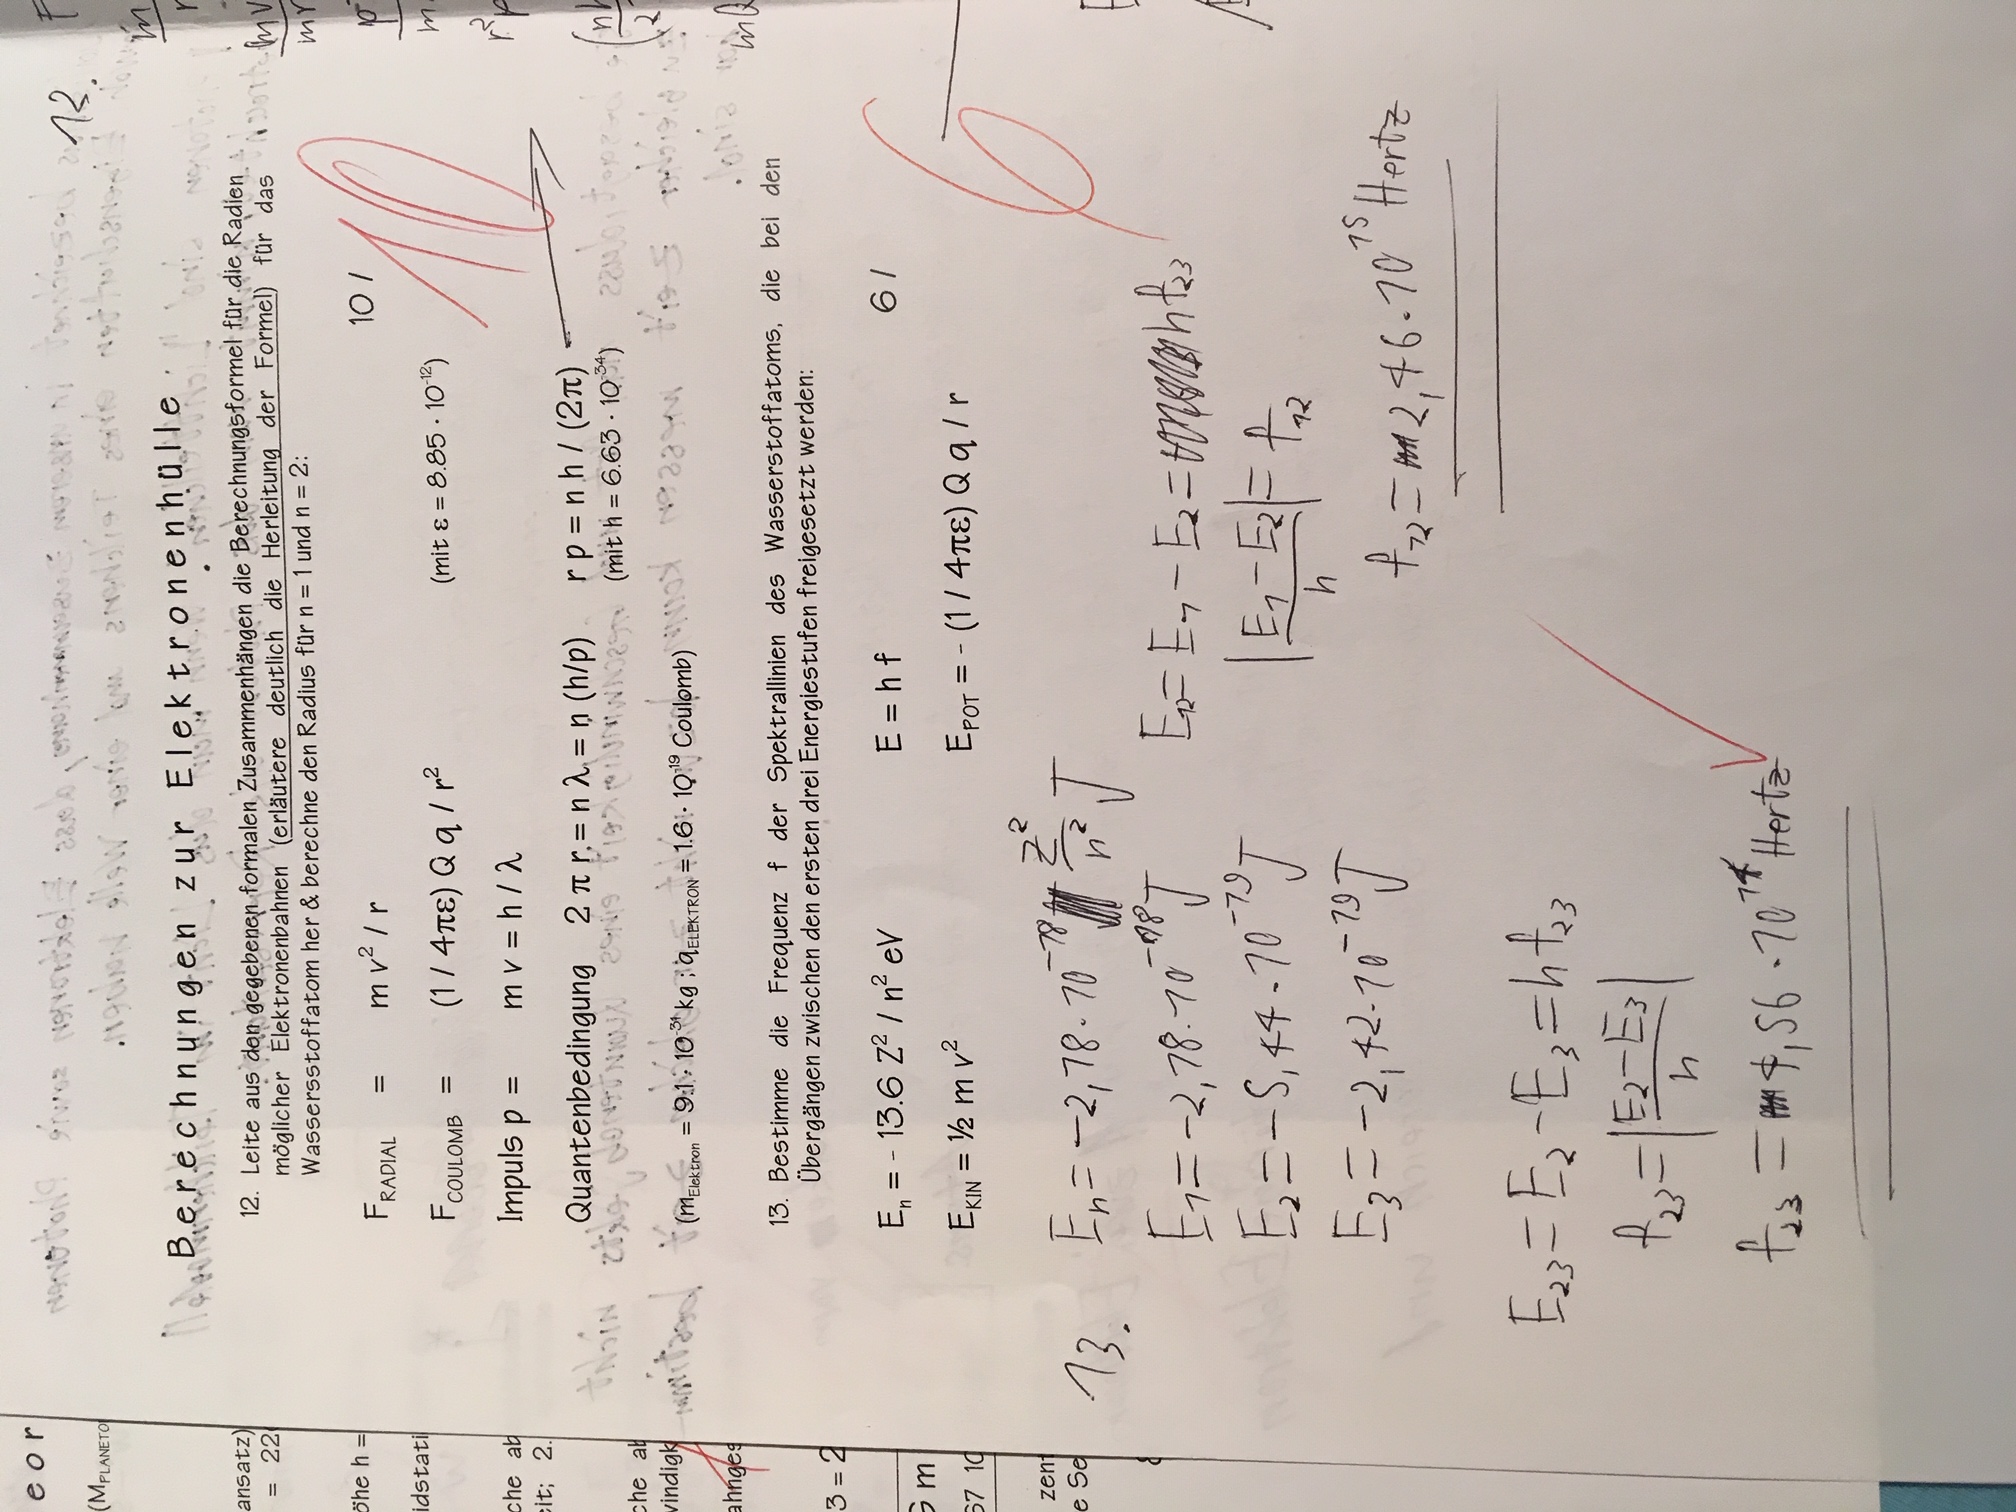 eor
(MPLANETO
ansatz)
= 22
öhe h =
idstati
che ab
eit; 2.
che ab
vindigk
ahnges
3 = 2
G m
67 10
zent
e Se
12.
Berechnungen zur Elektronenhülle
12. Leite aus den gegebenen formalen Zusammenhängen die Berechnungsformel für die Radien
möglicher Elektronenbahnen (erläutere deutlich die Herleitung der Formel) für das
Wassersstoffatom her & berechne den Radius für n = 1 und n = 2:
F_RADIAL = m v² / r 10 / 10
F_COULOMB = (1 / 4πε) Q q / r² (mit ε = 8.85 · 10⁻¹²)
Impuls p = m v = h / λ
Quantenbedingung 2 π r = n λ = n (h/p) r p = n h / (2π)
(mit h = 6.63 · 10⁻³⁴)
(m_Elektron = 9.1 · 10⁻³¹ kg ; q_ELEKTRON = 1.6 · 10⁻¹⁹ Coulomb)
13. Bestimme die Frequenz f der Spektrallinien des Wasserstoffatoms, die bei den
Übergängen zwischen den ersten drei Energiestufen freigesetzt werden:
E_n = - 13.6 Z² / n² eV E = h f 6 / 6
E_KIN = ½ m v² E_POT = - (1 / 4πε) Q q / r
13. E_n = -2,18 · 10⁻¹⁸ Z²/n² J
E₁ = -2,18 · 10⁻¹⁸ J
E₂ = -5,44 · 10⁻¹⁹ J
E₃ = -2,42 · 10⁻¹⁹ J
E₁₂ = E₁ - E₂ = h f₂₃
|(E₁ - E₂)/h| = f₁₂
f₁₂ = 2,46 · 10¹⁵ Hertz
E₂₃ = E₂ - E₃ = h f₂₃
f₂₃ = |(E₂ - E₃)/h|
f₂₃ = 4,56 · 10¹⁴ Hertz